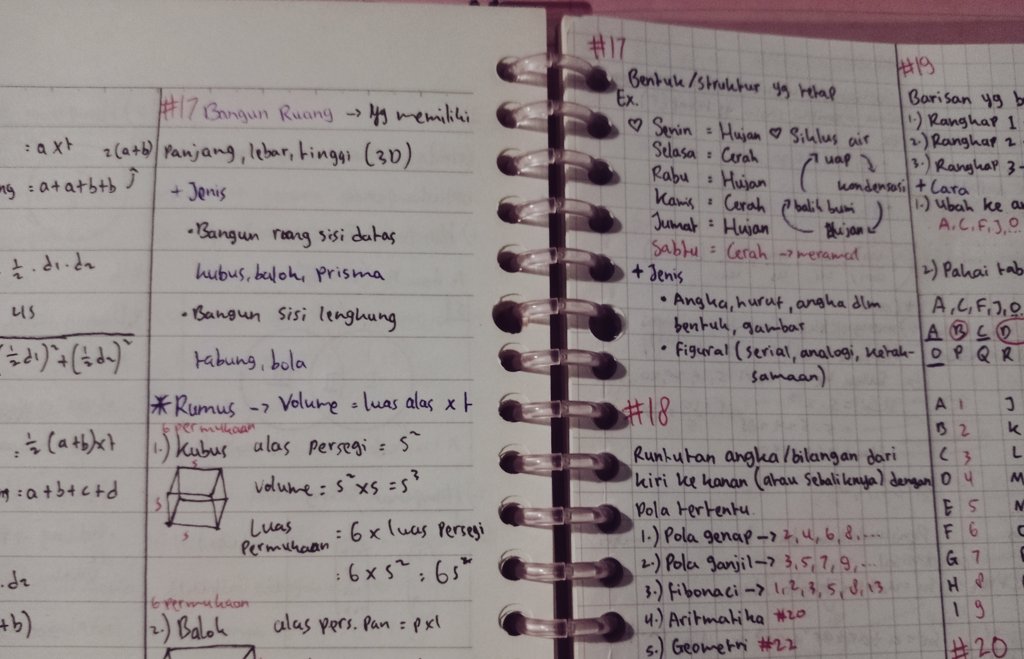 : a x t 2(a+b)
ng : a+a+b+b
1/2 . d1 . d2
4s
(1/2 d1)² + (1/2 d2)²
: 1/2 (a+b) x t
ng : a+b+c+d
. d2
+b)
#17 Bangun Ruang -> yg memiliki
panjang, lebar, tinggi (3D)
+ Jenis
• Bangun ruang sisi datar
kubus, balok, prisma
• Bangun sisi lengkung
tabung, bola
* Rumus -> Volume = luas alas x t
6 permukaan
1.) Kubus alas persegi = s²
s
s
s
volume = s² x s = s³
Luas Permukaan = 6 x luas persegi
: 6 x s² : 6s²
6 permukaan
2.) Balok alas pers. pan = p x l
#17
Bentuk/struktur yg tetap
Ex.
♡ Senin = Hujan
Selasa = Cerah
Rabu = Hujan
Kamis = Cerah
Jumat = Hujan
Sabtu = Cerah -> meramal
♡ Siklus air
uap
kondensasi
hujan
balik bumi
+ Jenis
• Angka, huruf, angka dlm
bentuk, gambar
• Figural (serial, analogi, ketak-
samaan)
#18
Runtutan angka/bilangan dari
kiri ke kanan (atau sebaliknya) dengan
pola tertentu.
1.) Pola genap -> 2, 4, 6, 8, ...
2.) Pola ganjil -> 3, 5, 7, 9, ...
3.) Fibonaci -> 1, 2, 3, 5, 8, 13
4.) Aritmatika #20
5.) Geometri #22
#19
Barisan yg b
1.) Rangkap 1
2.) Rangkap 2
3.) Rangkap 3
+ Cara
1.) Ubah ke an
A, C, F, J, O
2.) Pakai tab
A, C, F, J, O
A B C D
O P Q R
A 1 J
B 2 K
C 3 L
D 4 M
E 5 N
F 6
G 7
H 8
I 9
#20